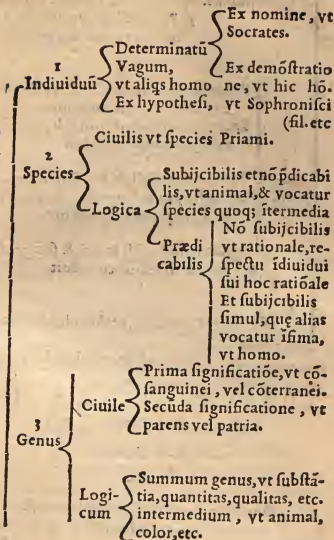 Ex nomine, vt
Socrates.
Determinatū
1
Indiuiduū
Vagum,
vt aliqs homo
Ex hypothesi,
Ex demōstratio
ne, vt hic hō.
vt Sophronisci
(fil.etc
2
Species
Ciuilis vt species Priami.
Logica
Subijcibilis et nō p̄dicabi
lis, vt animal, & vocatur
species quoq; ītermedia
Prædi
cabilis
Nō subijcibilis
vt rationale, re-
spectu īdiuidui
sui hoc ratiōale
Et subijcibilis
simul, quę alias
vocatur īfima,
vt homo.
3
Genus
Ciuile
Prima significatiōe, vt cō-
sanguinei, vel cōterranei.
Secūda significatione, vt
parens vel patria.
Logi-
cum
Summum genus, vt substā-
tia, quantitas, qualitas, etc.
intermedium, vt animal,
color, etc.